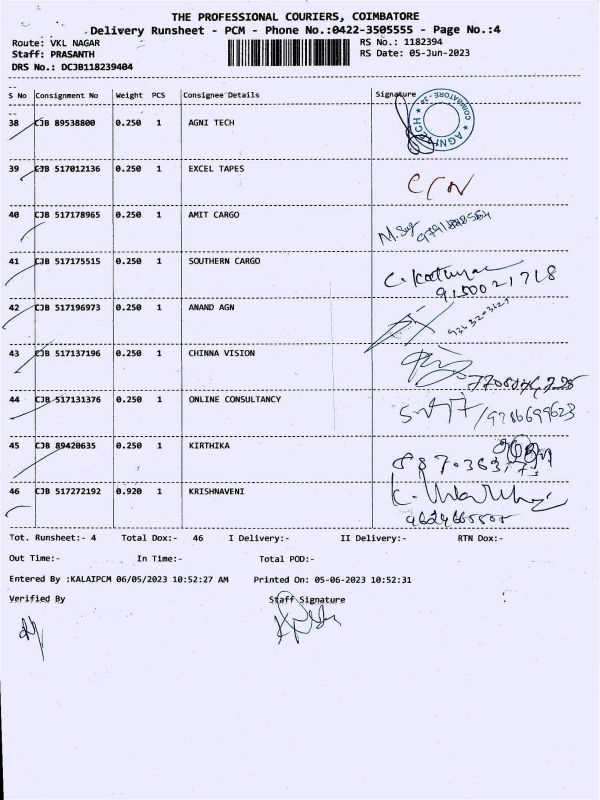 THE PROFESSIONAL COURIERS, COIMBATORE
Delivery Runsheet - PCM - Phone No.:0422-3505555 - Page No.:4
Route: VKL NAGAR RS No.: 1182394
Staff: PRASANTH RS Date: 05-Jun-2023
DRS No.: DCJB118239404
S No Consignment No Weight PCS Consignee Details Signature
38 CJB 89538800 0.250 1 AGNI TECH
39 CJB 517012136 0.250 1 EXCEL TAPES
40 CJB 517178965 0.250 1 AMIT CARGO
41 CJB 517175515 0.250 1 SOUTHERN CARGO
9150021718
42 CJB 517196973 0.250 1 ANAND AGN
43 CJB 517137196 0.250 1 CHINNA VISION
44 CJB 517131376 0.250 1 ONLINE CONSULTANCY
9786699623
45 CJB 89420635 0.250 1 KIRTHIKA
46 CJB 517272192 0.920 1 KRISHNAVENI
Tot. Runsheet:- 4 Total Dox:- 46 I Delivery:- II Delivery:- RTN Dox:-
Out Time:- In Time:- Total POD:-
Entered By :KALAIPCM 06/05/2023 10:52:27 AM Printed On: 05-06-2023 10:52:31
Verified By Staff Signature